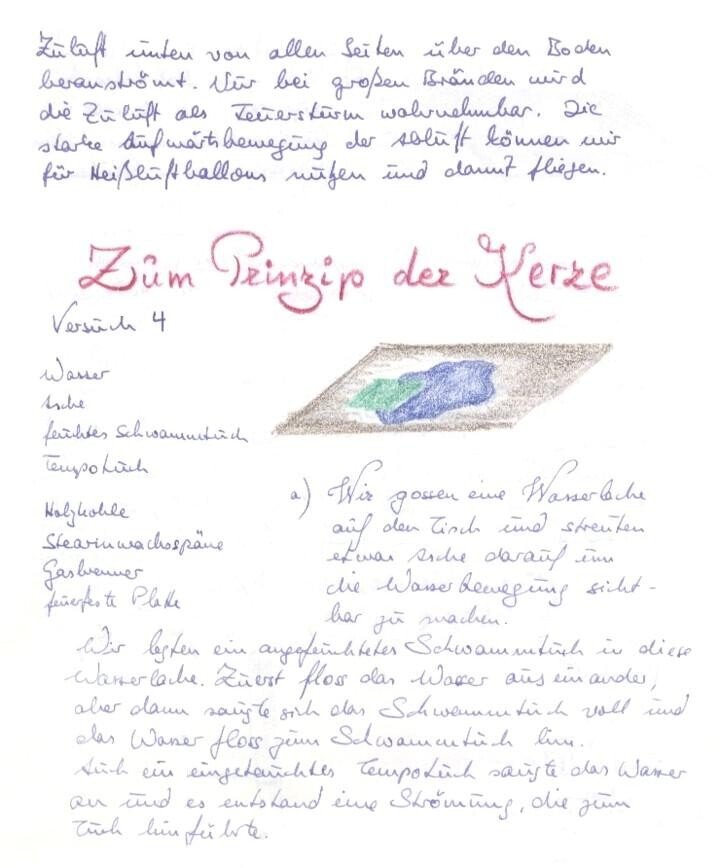 Zuluft unten von allen Seiten über den Boden
heranströmt. Nur bei großen Bränden wird
die Zuluft als Feuersturm wahrnehmbar. Die
starke Aufwärtsbewegung der Abluft können wir
für Heißluftballons nutzen und damit fliegen.
Zum Prinzip der Kerze
Versuch 4
Wasser
Asche
feuchtes Schwammtuch
Tempotuch
Holzkohle
Stearinwachsspäne
Gasbrenner
feuerfeste Platte
a) Wir gossen eine Wasserlache
auf den Tisch und streuten
etwas Asche darauf um
die Wasserbewegung sicht-
bar zu machen.
Wir legten ein angefeuchtetes Schwammtuch in diese
Wasserlache. Zuerst floss das Wasser auseinander,
aber dann saugte sich das Schwammtuch voll und
das Wasser floss zum Schwammtuch hin.
Auch ein eingetauchtes Tempotuch saugte das Wasser
an und es entstand eine Strömung, die zum
Tuch hinführte.